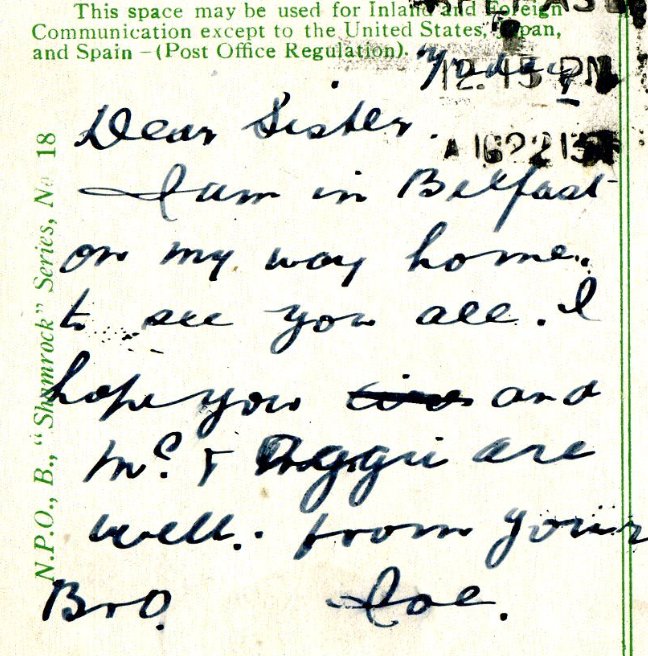 This space may be used for Inland and Foreign
Communication except to the United States, Japan,
and Spain – (Post Office Regulation).
BELFAST
12.15 PM
A 16 22 13
Dear Sister.
I am in Belfast
on my way home.
to see you all. I
hope you and
Mc. & Aggie are
well. from your
Bro. Joe.
N.P.O., B., "Shamrock" Series, No 18